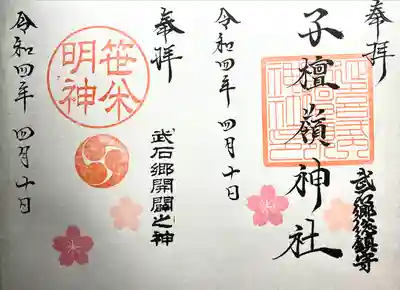 奉拝
子檀嶺神社
武石郷総鎮守
令和四年 四月十日
奉拝
武石郷開闢之神
笹焼
明神
令和四年 四月十日